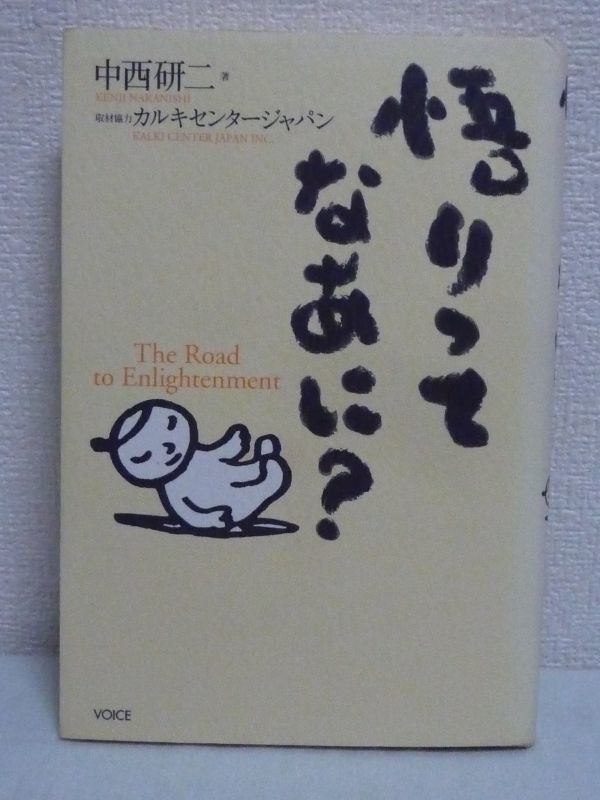 中西研二 著
KENJI NAKANISHI
取材協力 カルキセンタージャパン
KALKI CENTER JAPAN INC.
悟りって
なあに?
The Road
to Enlightenment
VOICE